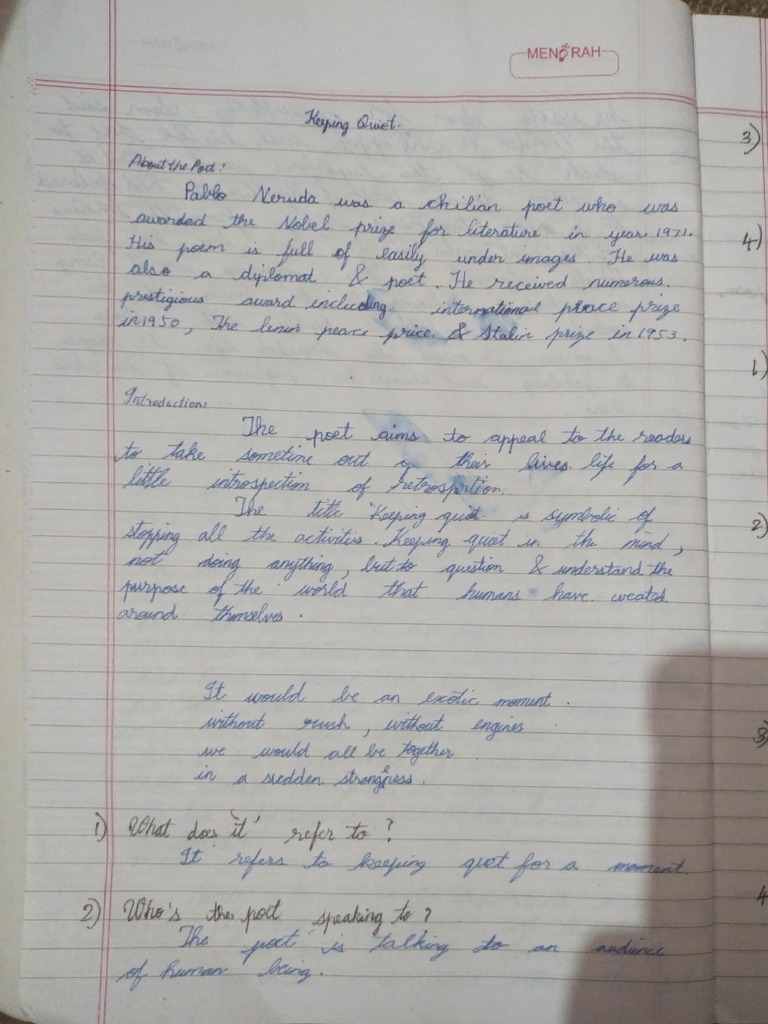 MENORAH
Keeping Quiet.
About the Poet:
Pablo Neruda was a chilian poet who was
awarded the Nobel prize for literature in year 1971.
His poem is full of easily under images. He was
also a diplomat & poet. He received numerous.
prestigious award including international peace prize
in 1950, The lenin peace price & Stalin prize in 1953.
Introduction:
The poet aims to appeal to the readers
to take sometime out of their lives life for a
little introspection of retrospition.
The title "Keeping quiet is symbolic of
stopping all the activities. Keeping quiet in the mind,
not doing anything, but to question & understand the
purpose of the world that humans have created
around themselves.
It would be an exotic moment.
without rush, without engines
we would all be together
in a sudden strangness.
1) What does 'it' refer to?
It refers to keeping quiet for a moment.
2) Who's the poet speaking to?
The poet is talking to an audience
of human being.
3)
4)
1)
2)
3)
4